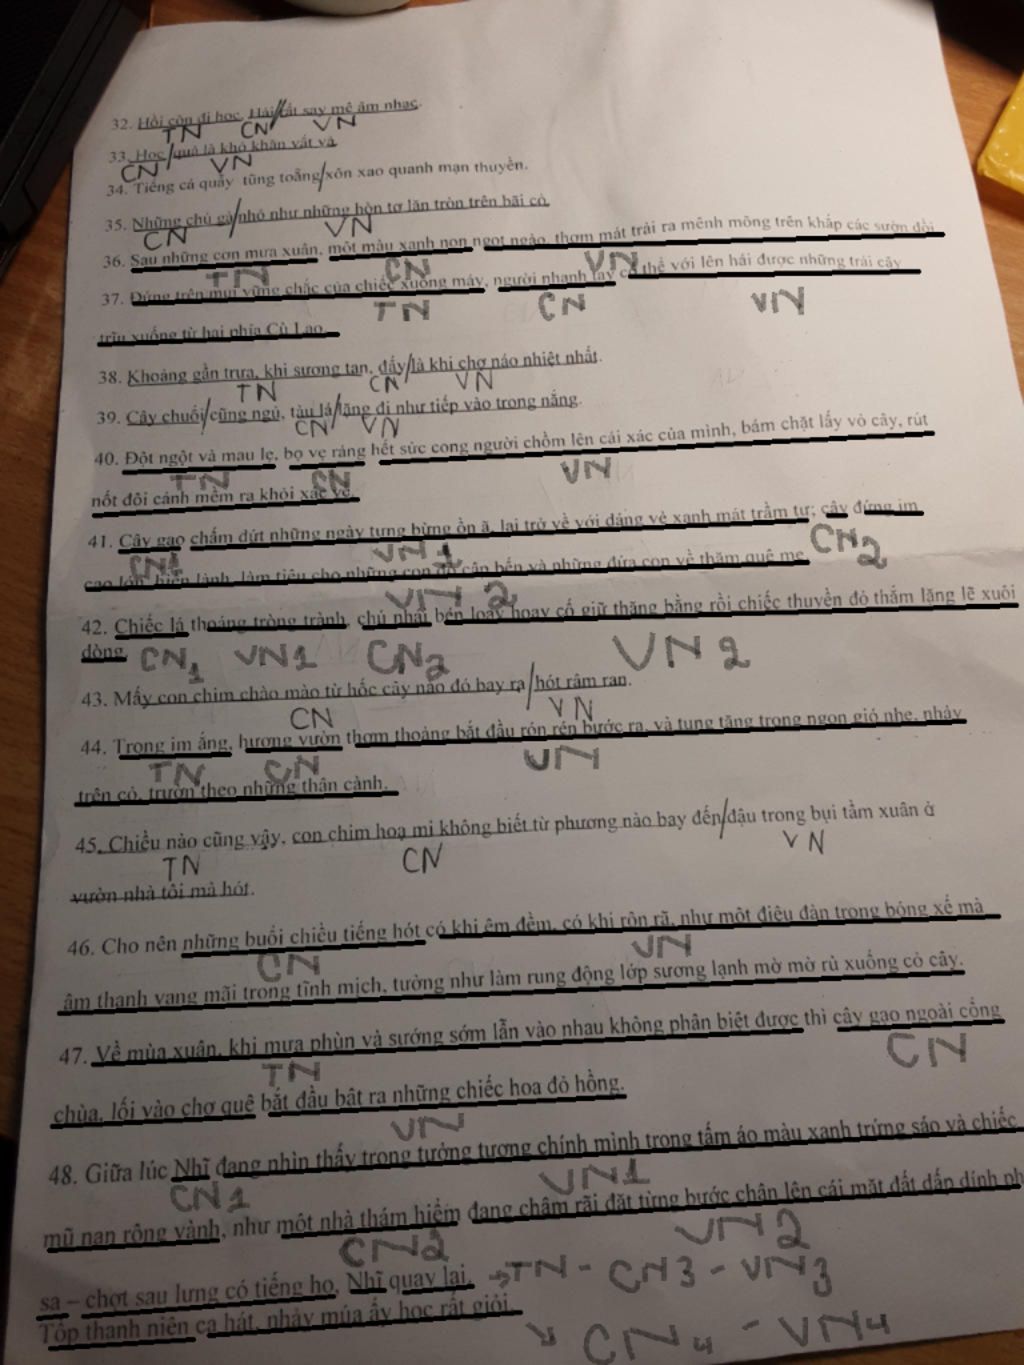 32. Hồi còn đi học, Hải/rất say mê âm nhạc.
TN CN VN
33. Học/quả là khó khăn vất vả
CN VN
34. Tiếng cá quẫy tũng toẵng/xôn xao quanh mạn thuyền.
35. Những chú gà/nhỏ như những hòn tơ lăn tròn trên bãi cỏ.
CN VN
36. Sau những cơn mưa xuân, một màu xanh non ngọt ngào, thơm mát trải ra mênh mông trên khắp các sườn đồi
TN CN VN
37. Đứng trên mui vững chắc của chiếc xuồng máy, người nhanh tay có thể với lên hái được những trái cây
TN CN VN
trĩu xuống từ hai phía Cù Lao.
38. Khoảng gần trưa, khi sương tan, đấy/là khi chợ náo nhiệt nhất.
TN CN VN
39. Cây chuối/cũng ngủ, tàu lá/lặng đi như tiếp vào trong nắng.
CN VN
40. Đột ngột và mau lẹ, bọ vẹ ráng hết sức cong người chồm lên cái xác của mình, bám chặt lấy vỏ cây, rút
TN CN VN
nốt đôi cánh mềm ra khỏi xác ve.
41. Cây gạo chấm dứt những ngày tưng bừng ồn ã, lại trở về với dáng vẻ xanh mát trầm tư; cây đứng im
CN1 VN1 CN2
cao lớn, hiền lành, làm tiêu cho những con đò cập bến và những đứa con về thăm quê mẹ
VN 2
42. Chiếc lá thoáng tròng trành, chú nhái bén loay hoay cố giữ thăng bằng rồi chiếc thuyền đỏ thắm lặng lẽ xuôi
dòng.
CN1 VN1 CN2 VN2
43. Mấy con chim chào mào từ hốc cây nào đó bay ra/hót râm ran.
CN VN
44. Trong im ắng, hương vườn thơm thoảng bắt đầu rón rén bước ra, và tung tăng trong ngọn gió nhẹ, nhảy
TN CN VN
trên cỏ, trườn theo những thân cành.
45. Chiều nào cũng vậy, con chim hoạ mi không biết từ phương nào bay đến/đậu trong bụi tầm xuân ở
TN CN VN
vườn nhà tôi mà hót.
46. Cho nên những buổi chiều tiếng hót có khi êm đềm, có khi rộn rã, như một điệu đàn trong bóng xế mà
CN VN
âm thanh vang mãi trong tĩnh mịch, tưởng như làm rung động lớp sương lạnh mờ mờ rủ xuống cỏ cây.
47. Về mùa xuân, khi mưa phùn và sướng sớm lẫn vào nhau không phân biệt được thì cây gạo ngoài cổng
TN CN
chùa, lối vào chợ quê bắt đầu bật ra những chiếc hoa đỏ hồng.
VN
48. Giữa lúc Nhĩ đang nhìn thấy trong tưởng tượng chính mình trong tấm áo màu xanh trứng sáo và chiếc
CN1 VN1
mũ nan rộng vành, như một nhà thám hiểm đang chậm rãi đặt từng bước chân lên cái mặt đất dấp dính ph
CN2 VN2
sa – chợt sau lưng có tiếng ho, Nhĩ quay lại. → TN - CN3 - VN3
Tốp thanh niên ca hát, nhảy múa ấy học rất giỏi.
↘ CN4 - VN4